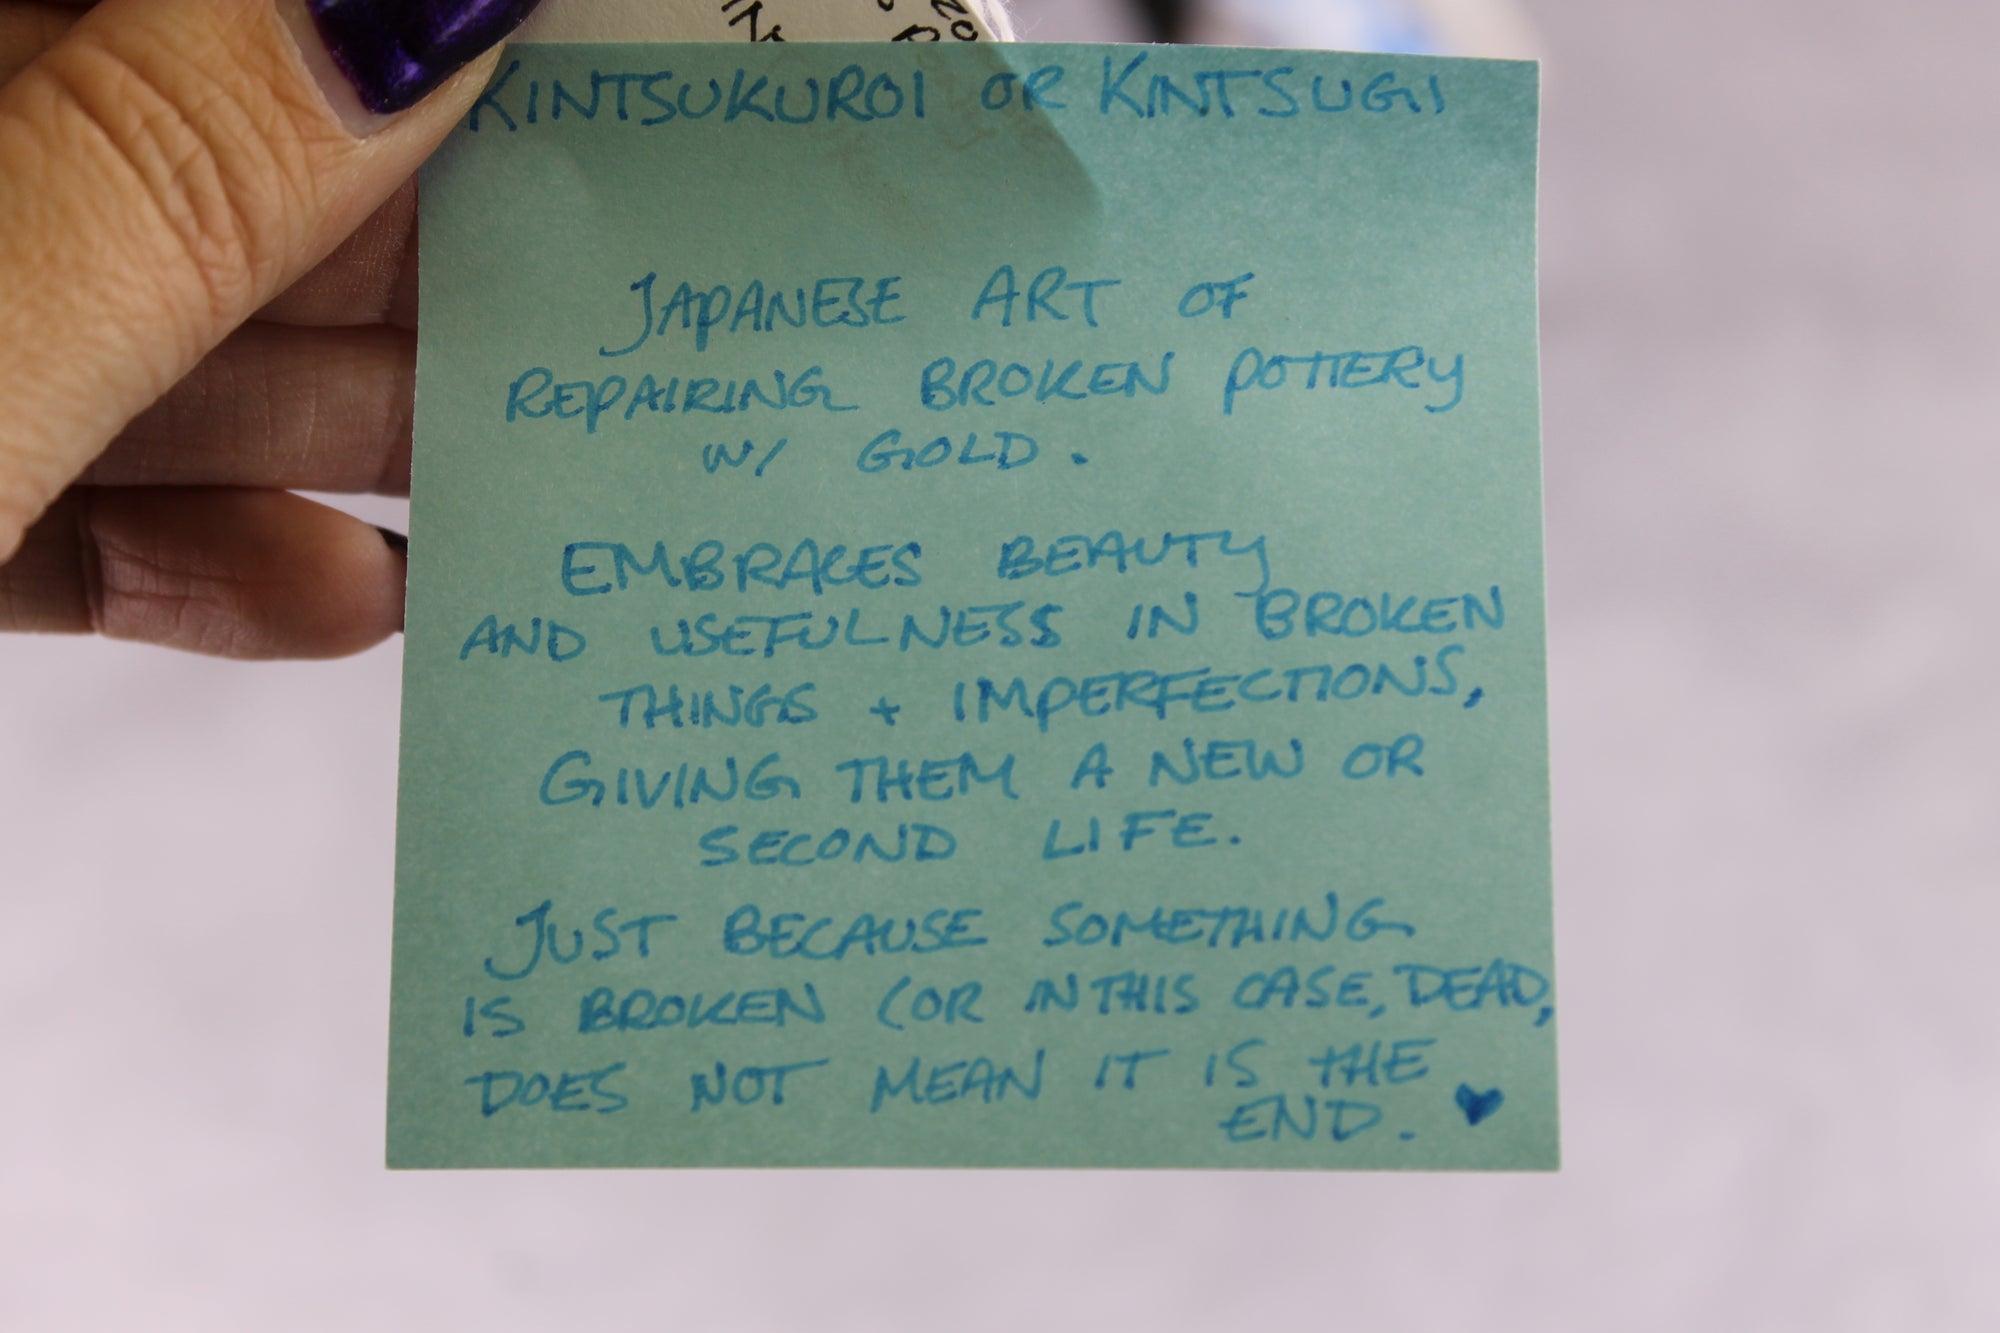 KINTSUKUROI OR KINTSUGI
JAPANESE ART OF
REPAIRING BROKEN POTTERY
W/ GOLD.
EMBRACES BEAUTY
AND USEFULNESS IN BROKEN
THINGS + IMPERFECTIONS,
GIVING THEM A NEW OR
SECOND LIFE.
JUST BECAUSE SOMETHING
IS BROKEN (OR IN THIS CASE, DEAD,
DOES NOT MEAN IT IS THE
END. ♥